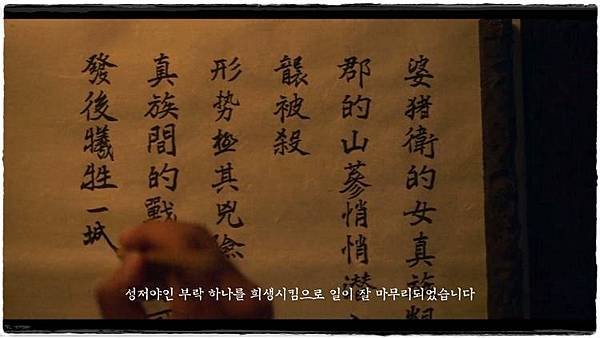 婆猪衛的女真族
郡的山蔘悄悄潜
襲被殺
形势極其兇險
真族間的戰 可
發後犧牲一城
성저야인 부락 하나를 희생시킴으로 일이 잘 마무리되었습니다